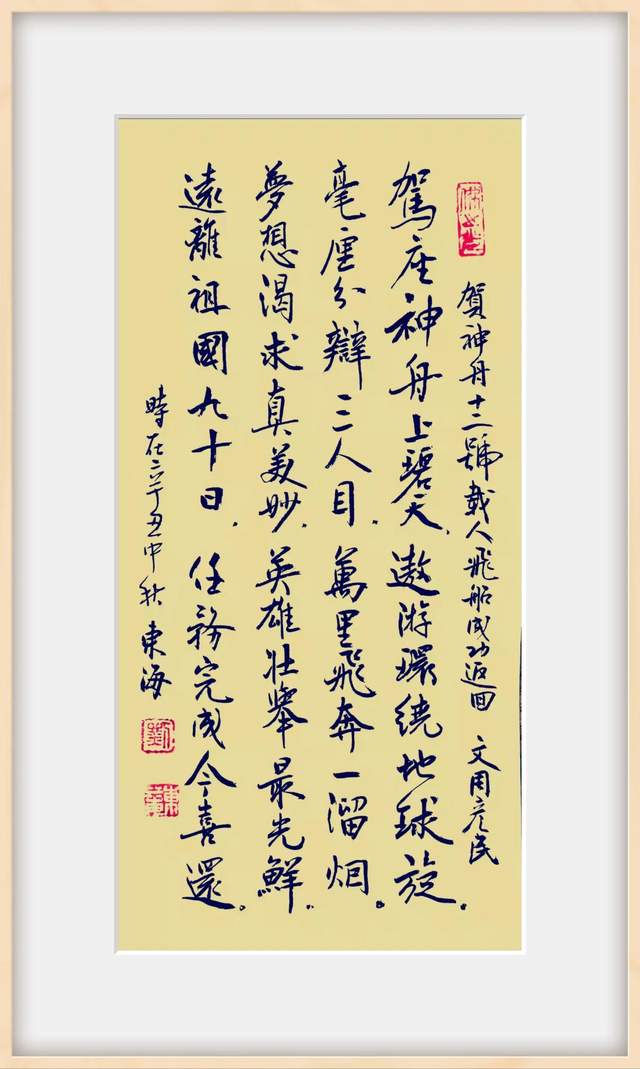 賀神舟十二號載人飛船成功返回 文用彦民
駕座神舟上碧天.遨游環繞地球旋.
毫厘分辯三人目.萬里飛奔一溜烟.
夢想渴求真美妙.英雄壯舉最光鮮.
遠離祖國九十日.任務完成今喜還.
時在辛丑中秋 東海